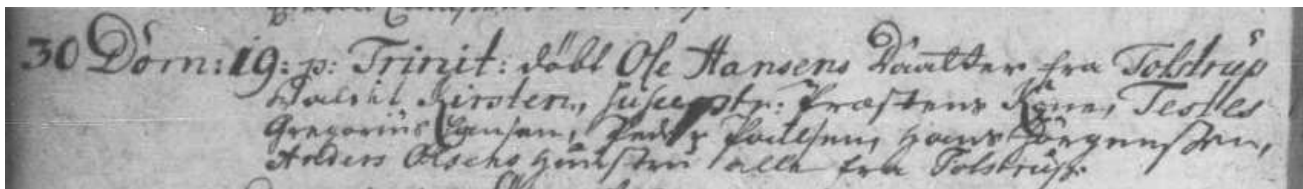 30 Dom: 19: p: Trinit: döbt Ole Hansens Daatter fra Tolstrup
kaldet Kirsten, Susceptr: Præstens Kone, Testes
Gregorius Clausen, Peder Poulsen, Hans Jörgensen,
Anders Olsens Hustru alle fra Tolstrup.